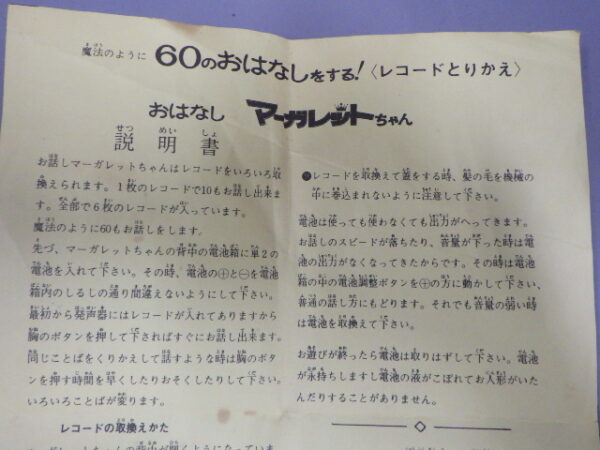 魔法のように 60のおはなしをする!〈レコードとりかえ〉
おはなし マーガレットちゃん
説明書
お話しマーガレットちゃんはレコードをいろいろ取
換えられます。1枚のレコードで10もお話し出来ま
す。全部で6枚のレコードが入っています。
魔法のように60もお話しをします。
先づ、マーガレットちゃんの背中の電池箱に単2の
電池を入れて下さい。その時、電池の⊕と⊖を電池
箱内のしるしの通り間違えないようにして下さい。
最初から発声器にはレコードが入れてありますから
胸のボタンを押して下さればすぐにお話し出来ます。
同じことばをくりかえして話すような時は胸のボタ
ンを押す時間を早くしたりおそくしたりして下さい。
いろいろことばが変ります。
レコードの取換えかた
●レコードを取換えて蓋をする時、髪の毛を機械の
中に巻込まれないように注意して下さい。
電池は使っても使わなくても出力がへってきます。
お話しのスピードが落ちたり、音量が下った時は電
池の出力がなくなってきたからです。その時は電池
箱の中の電池調整ボタンを⊕の方に動かして下さい、
普通の話し方にもどります。それでも音量の弱い時
は電池を取換えて下さい。
お遊びが終ったら電池は取りはずして下さい。電池
が永持ちしますし電池の液がこぼれてお人形がいた
んだりすることがありません。